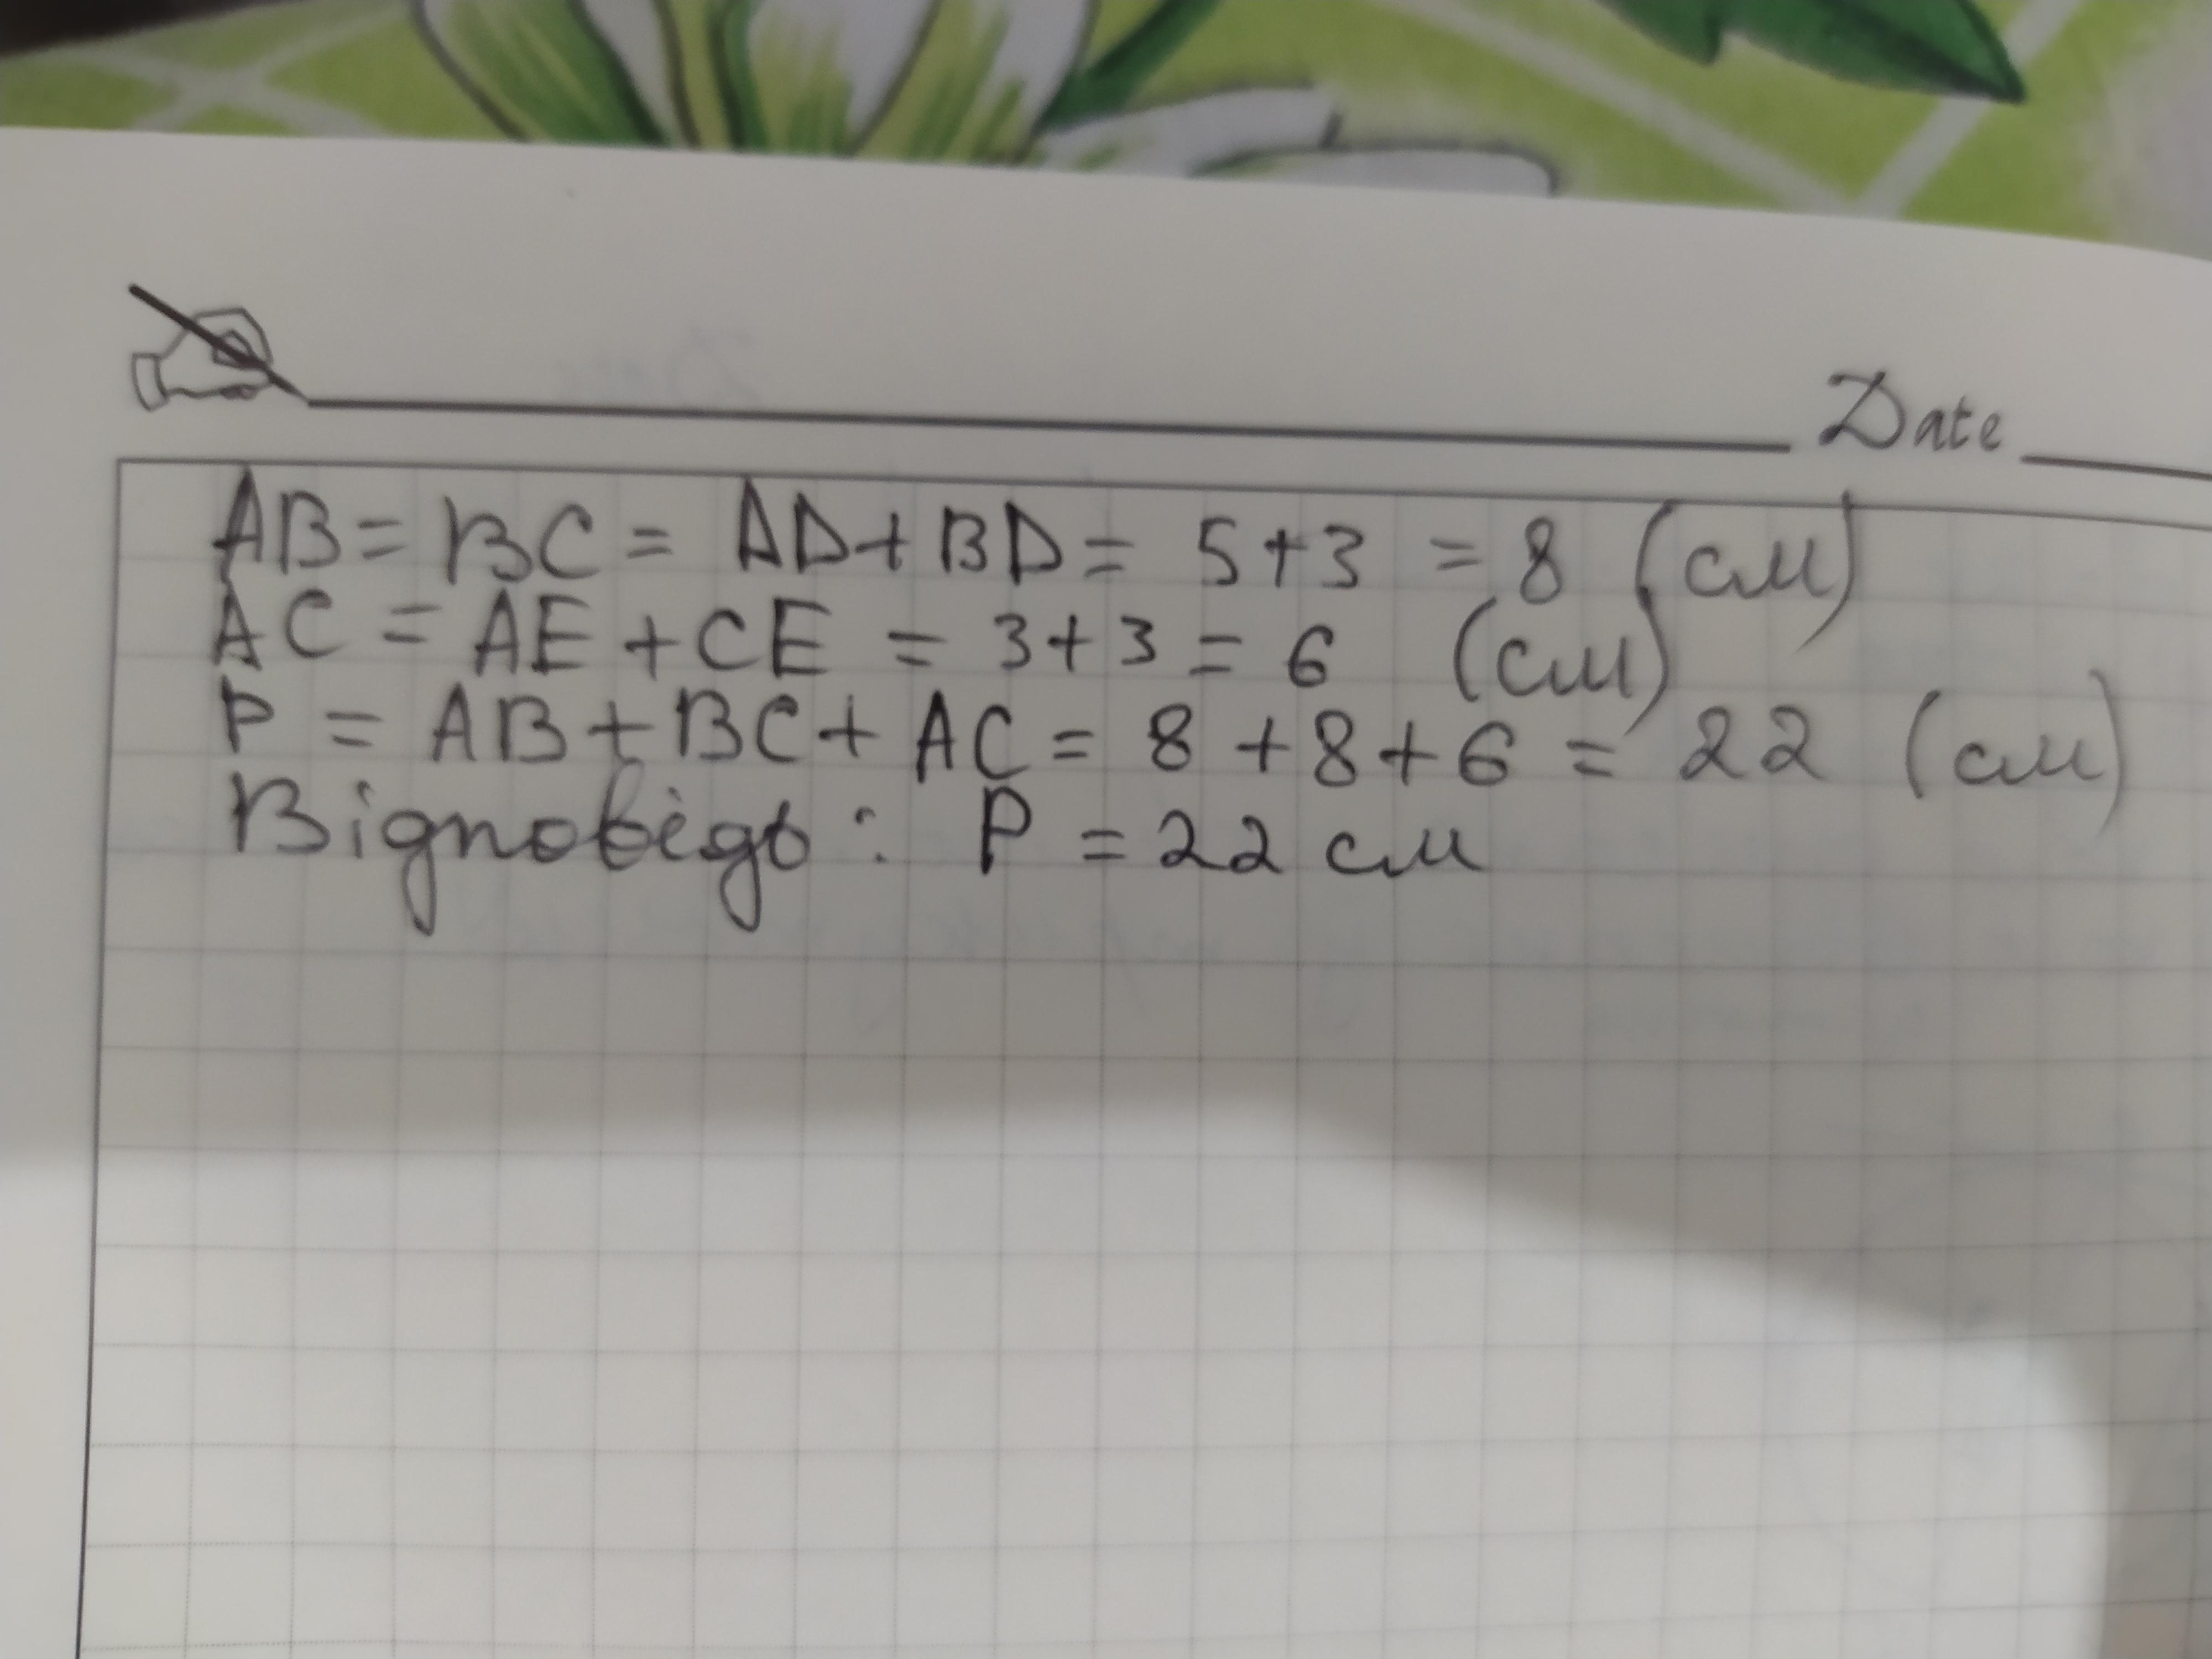 Date
AB = BC = AD + BD = 5 + 3 = 8 (см)
AC = AE + CE = 3 + 3 = 6 (см)
P = AB + BC + AC = 8 + 8 + 6 = 22 (см)
Відповідь: P = 22 см